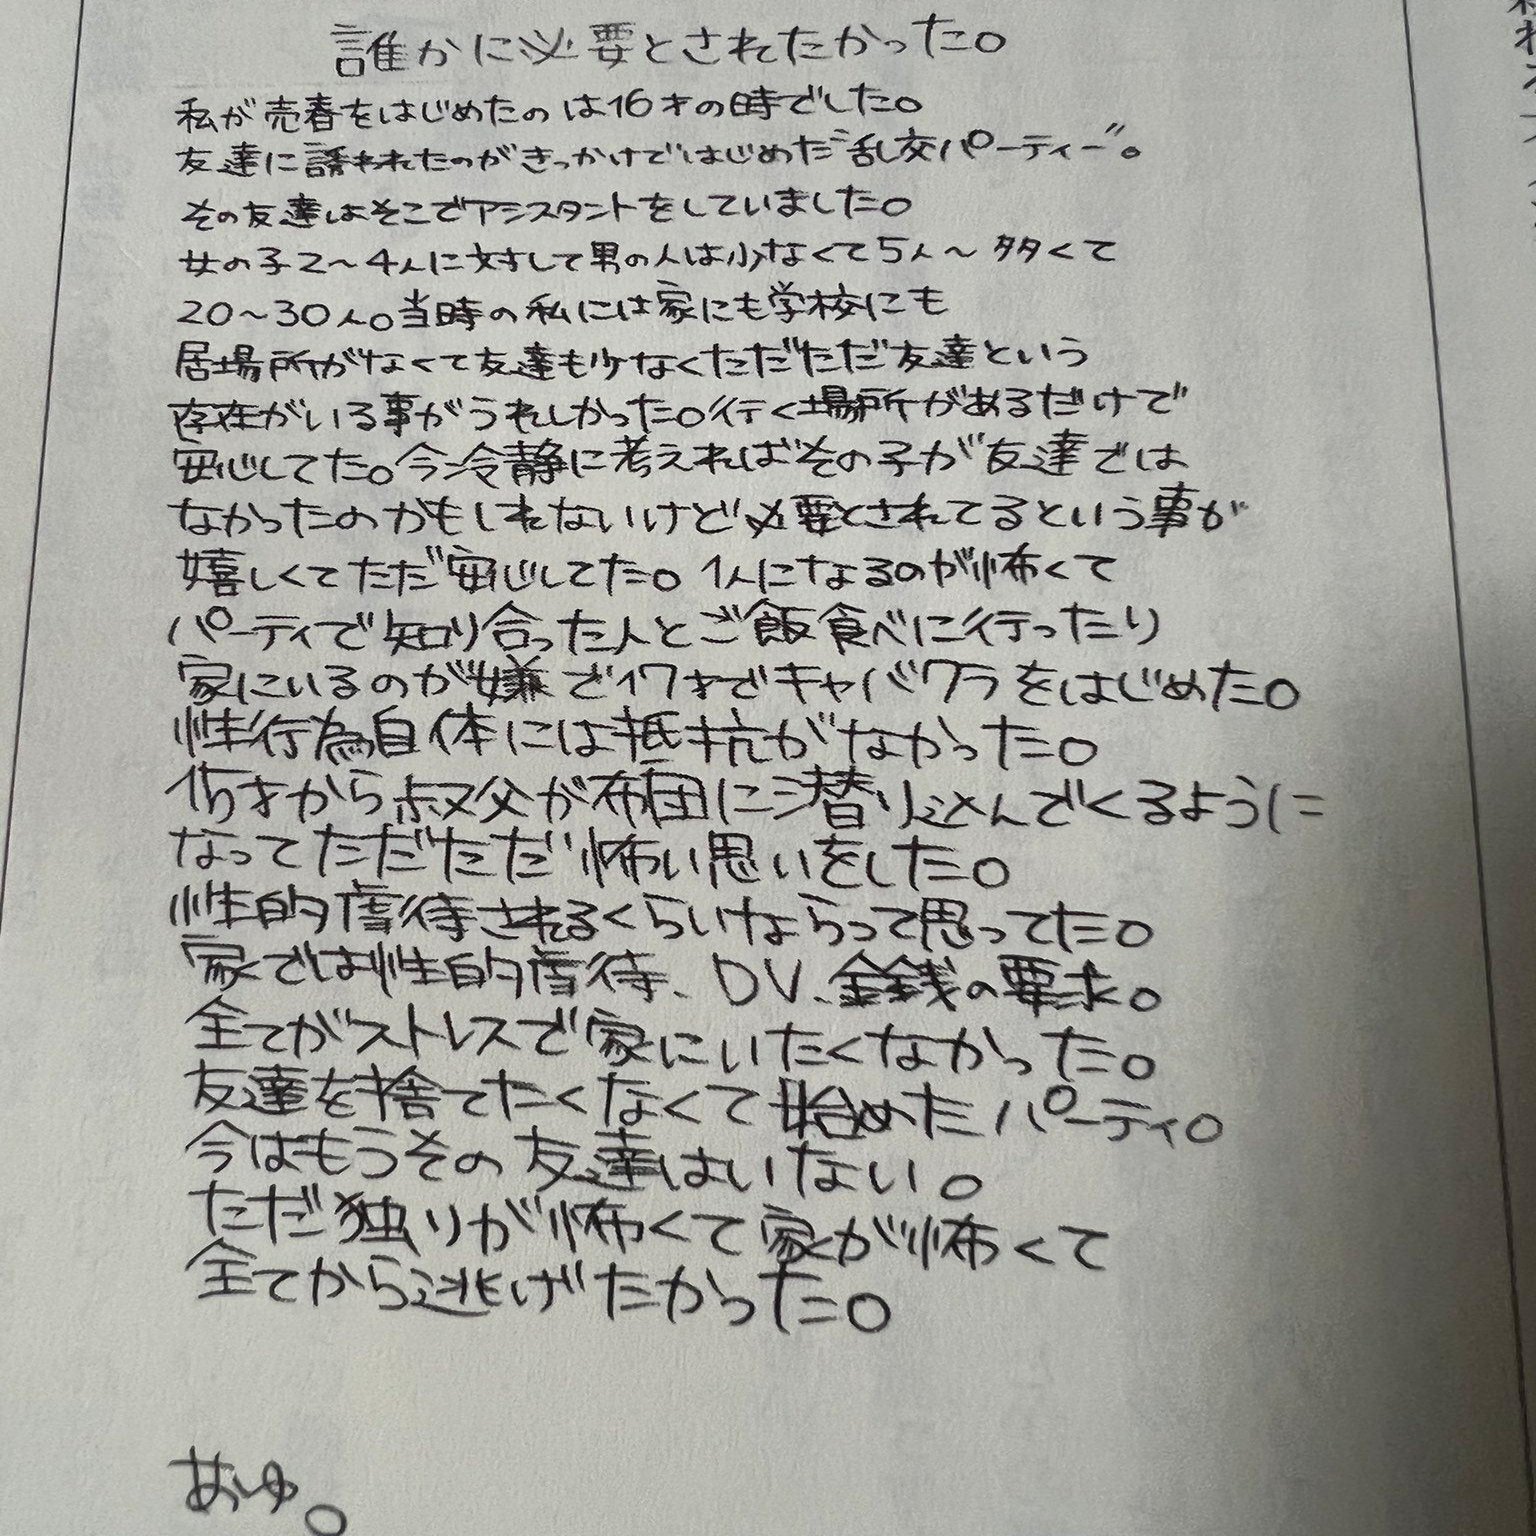 誰かに必要とされたかった。
私が売春をはじめたのは16才の時でした。
友達に誘われたのがきっかけではじめた"乱交パーティー"。
その友達はそこでアシスタントをしていました。
女の子2〜4人に対して男の人は少なくて5人〜多くて
20〜30人。当時の私には家にも学校にも
居場所がなくて友達も少なくただただ友達という
存在がいる事がうれしかった。行く場所があるだけで
安心してた。今冷静に考えればその子が友達では
なかったのかもしれないけど必要とされてるという事が
嬉しくてただ安心してた。1人になるのが怖くて
パーティで知り合った人とご飯食べに行ったり
家にいるのが嫌で17才でキャバクラをはじめた。
性行為自体には抵抗がなかった。
15才から叔父が布団に潜り込んでくるように
なってただただ怖い思いをした。
性的虐待されるくらいならって思ってた。
家では性的虐待、DV、金銭の要求。
全てがストレスで家にいたくなかった。
友達を捨てたくなくて始めたパーティ。
今はもうその友達はいない。
ただ独りが怖くて家が怖くて
全てから逃げたかった。
あゆ。